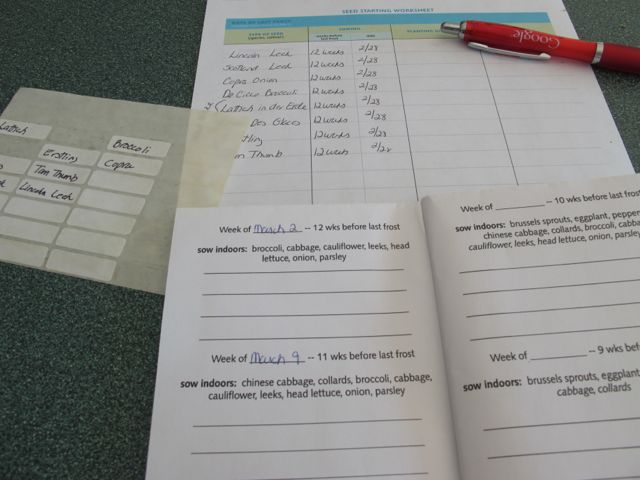 SEED STARTING WORKSHEET
DATE OF LAST FROST
TYPE OF SEED
SOWING
weeks before last frost
date
Lincoln Leek 12 weeks 2/28
Scotland Leek 12 weeks 2/28
Copra Onion 12 weeks 2/28
De Cicco Broccoli 12 weeks 2/28
Lattich in der Erde 12 weeks 2/28
Des Glaces 12 weeks 2/28
12 weeks 2/28
Tom Thumb 12 weeks 2/28
Google
Lattich
Erstling
Broccoli
Tom Thumb
Copra
Lincoln Leek
Week of March 2 -- 12 wks before last frost
sow indoors: broccoli, cabbage, cauliflower, leeks, head
lettuce, onion, parsley
Week of March 9 -- 11 wks before last frost
sow indoors: chinese cabbage, collards, broccoli, cabbage,
cauliflower, leeks, head lettuce, onion, parsley
Week of -- 10 wks before last frost
sow indoors: brussels sprouts, eggplant, pepper
chinese cabbage, collards, broccoli, cabb
cauliflower, leeks, head lettuce, onion, parsley
Week of -- 9 wks bef
sow indoors: brussels sprouts, eggplant
cabbage, collards